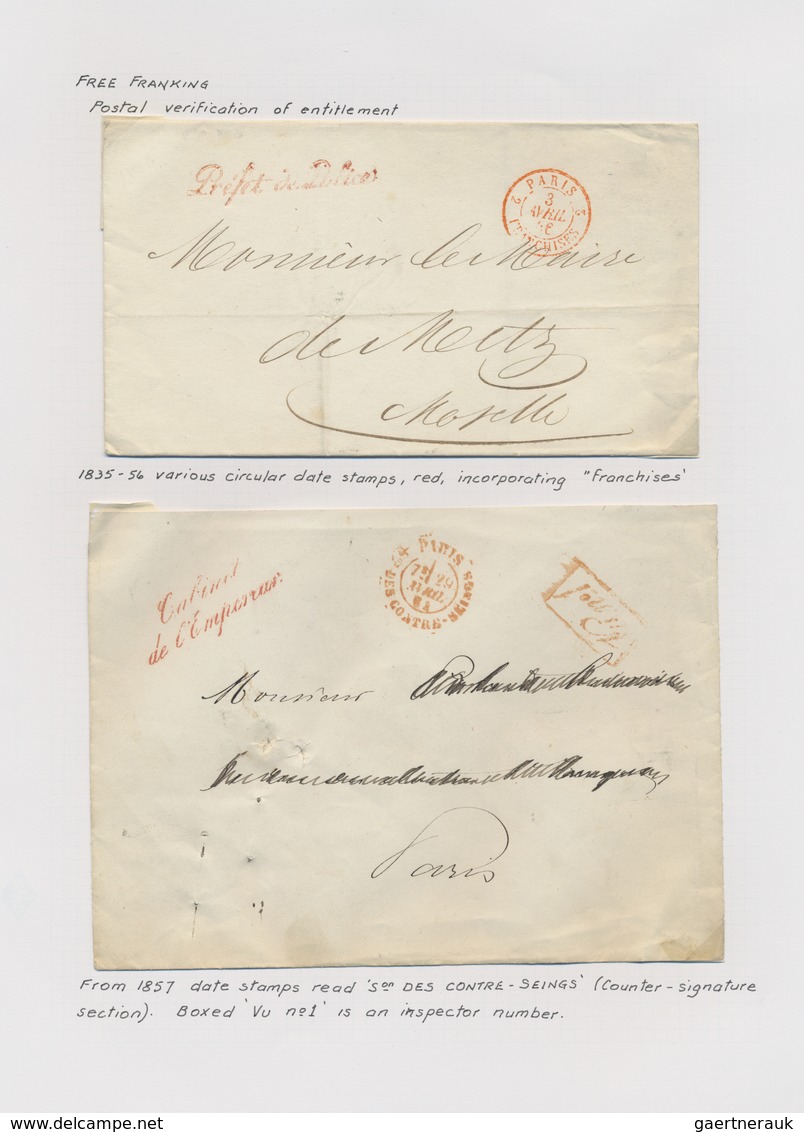 FREE FRANKING
Postal verification of entitlement
Préfet de Police
2 PARIS 2
3
AVRIL
FRANCHISES
Monsieur le Maire
de Metz
Moselle
1835-56 various circular date stamps, red, incorporating "franchises'
Cabinet
de l'Empereur
PARIS
29
AVRIL
DES CONTRE-SEINGS
Monsieur
Paris
From 1857 date stamps read 'Son DES CONTRE-SEINGS' (Counter-signature
section). Boxed 'Vu no1' is an inspector number.
gaertnerauk
DELCAMPE.NET